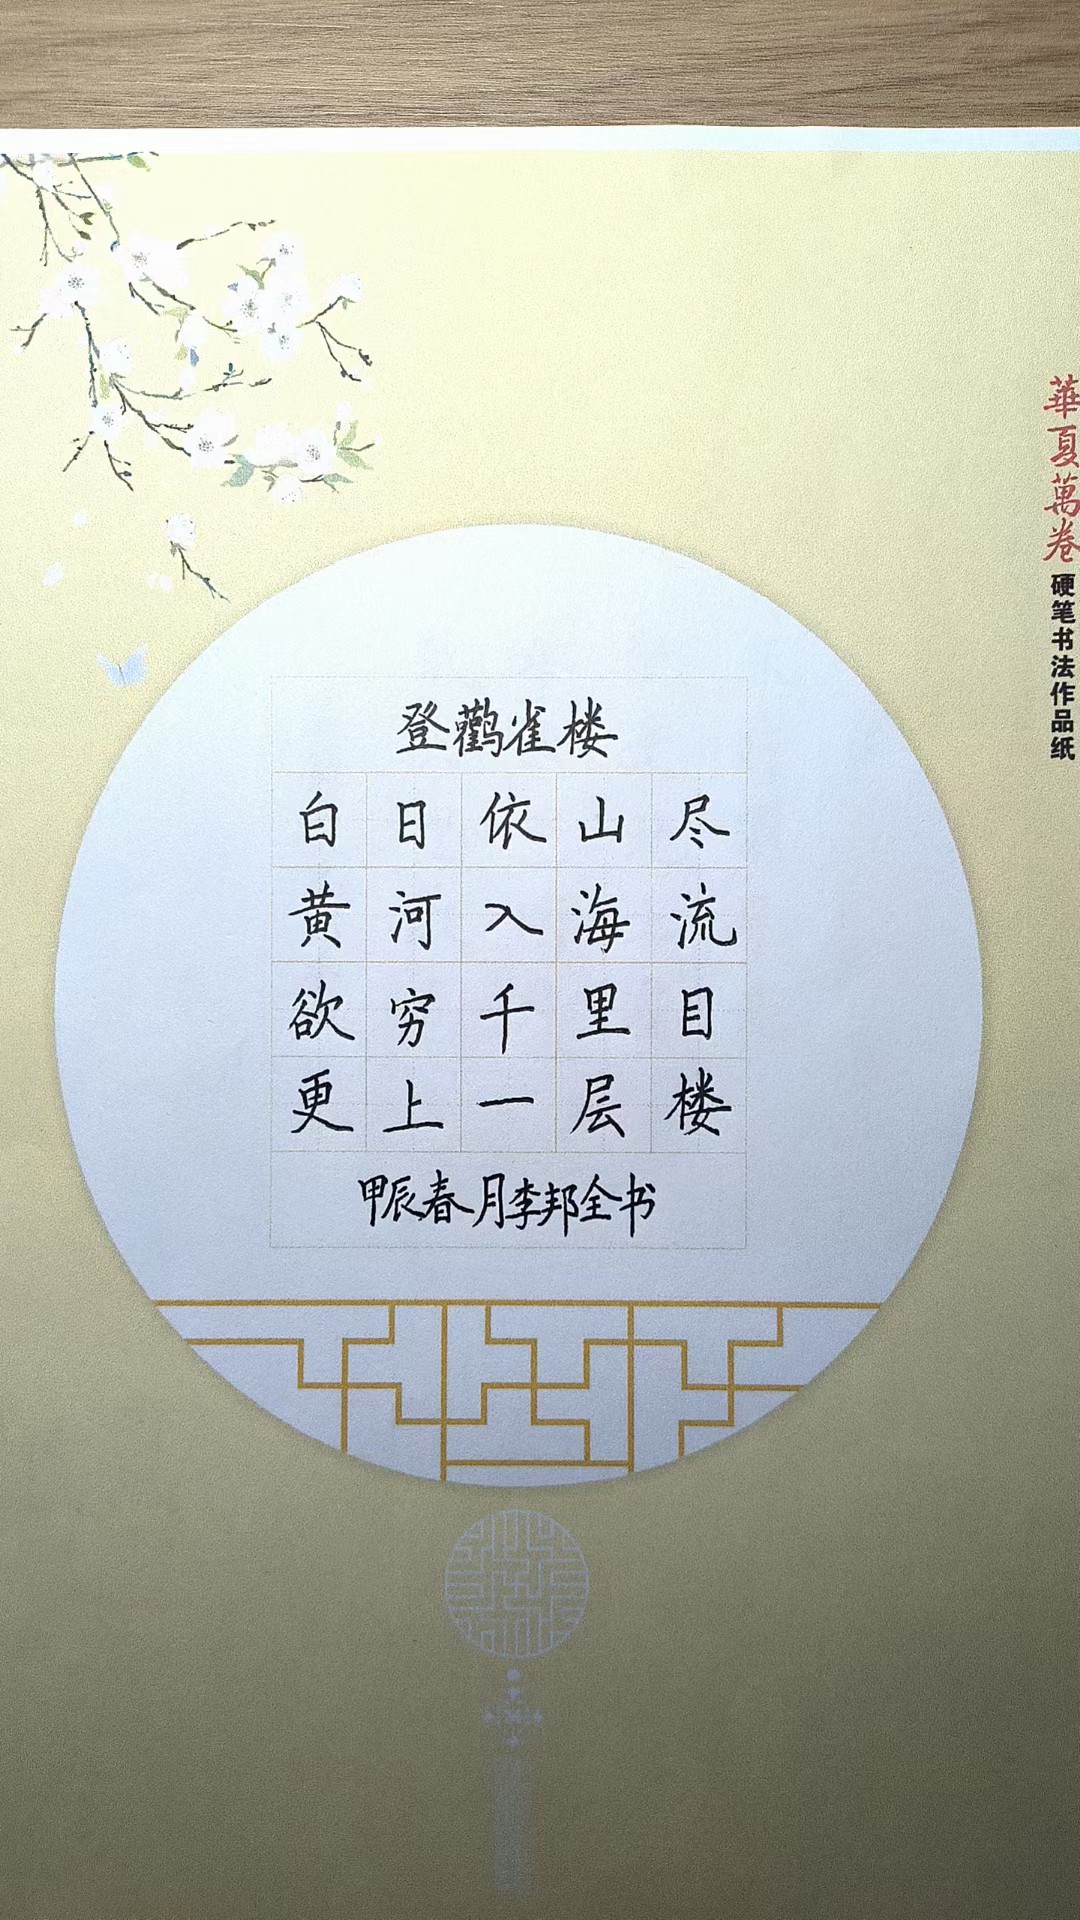 登鸛雀楼
白日依山尽
黄河入海流
欲穷千里目
更上一层楼
甲辰春月李邦全书
華夏萬卷
硬笔书法作品纸